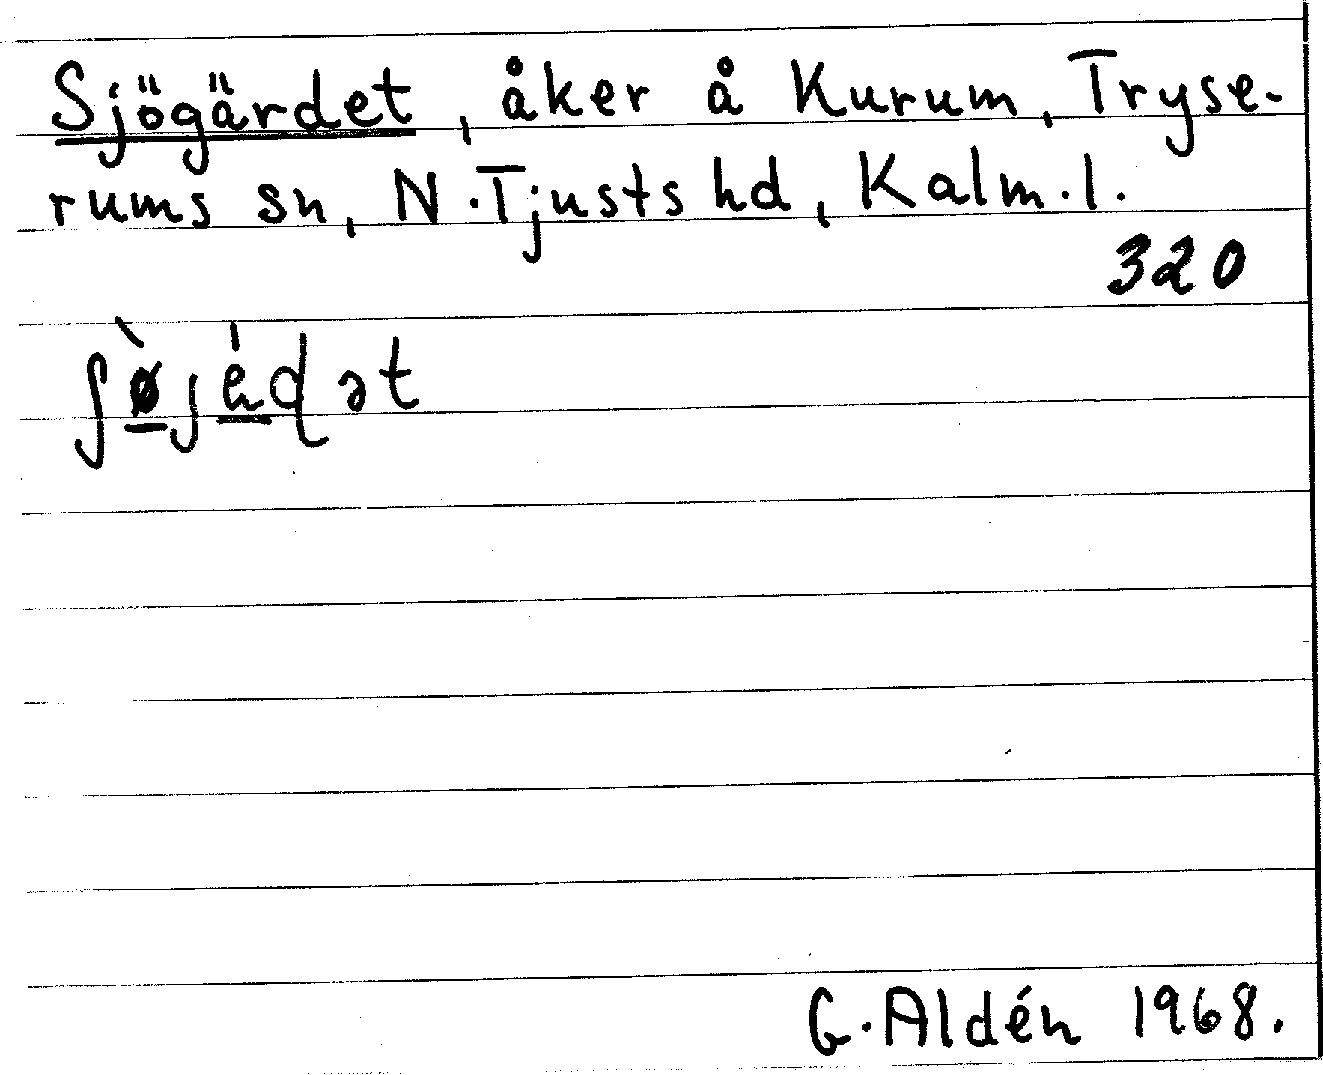 Sjögärdet, åker å Kurum, Tryse-
rums sn, N. Tjusts hd, Kalm. l.
320
G. Aldén 1968.